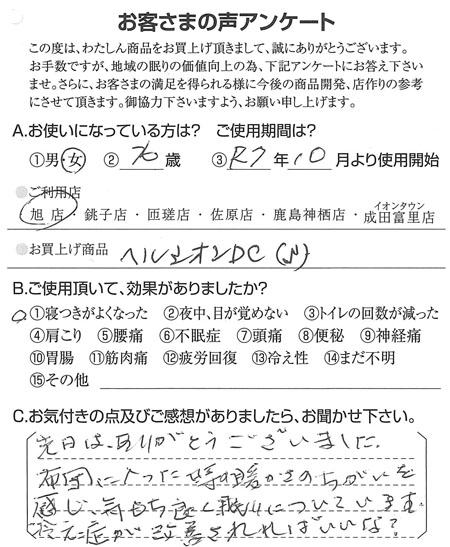 お客さまの声アンケート
この度は、わたしん商品をお買上げ頂きまして、誠にありがとうございます。
お手数ですが、地域の眠りの価値向上の為、下記アンケートにお答え下さい
ませ。さらに、お客さまの満足を得られる様に今後の商品開発、店作りの参考
にさせて頂きます。御協力下さいますよう、お願い申し上げます。
A.お使いになっている方は? ご使用期間は?
①男・女 ② 70 歳 ③ R7 年 10 月より使用開始
ご利用店
旭 店・銚子店・匝瑳店・佐原店・鹿島神栖店・イオンタウン成田富里店
お買上げ商品 ヘルシオンDC (S)
B.ご使用頂いて、効果がありましたか?
①寝つきがよくなった ②夜中、目が覚めない ③トイレの回数が減った
④肩こり ⑤腰痛 ⑥不眠症 ⑦頭痛 ⑧便秘 ⑨神経痛
⑩胃腸 ⑪筋肉痛 ⑫疲労回復 ⑬冷え性 ⑭まだ不明
⑮その他
C.お気付きの点及びご感想がありましたら、お聞かせ下さい。
先日は、ありがとうございました。
布団に入った時暖かさのちがいを
感じ、気持ち良く眠りについています。
冷え症が改善されればいいな?